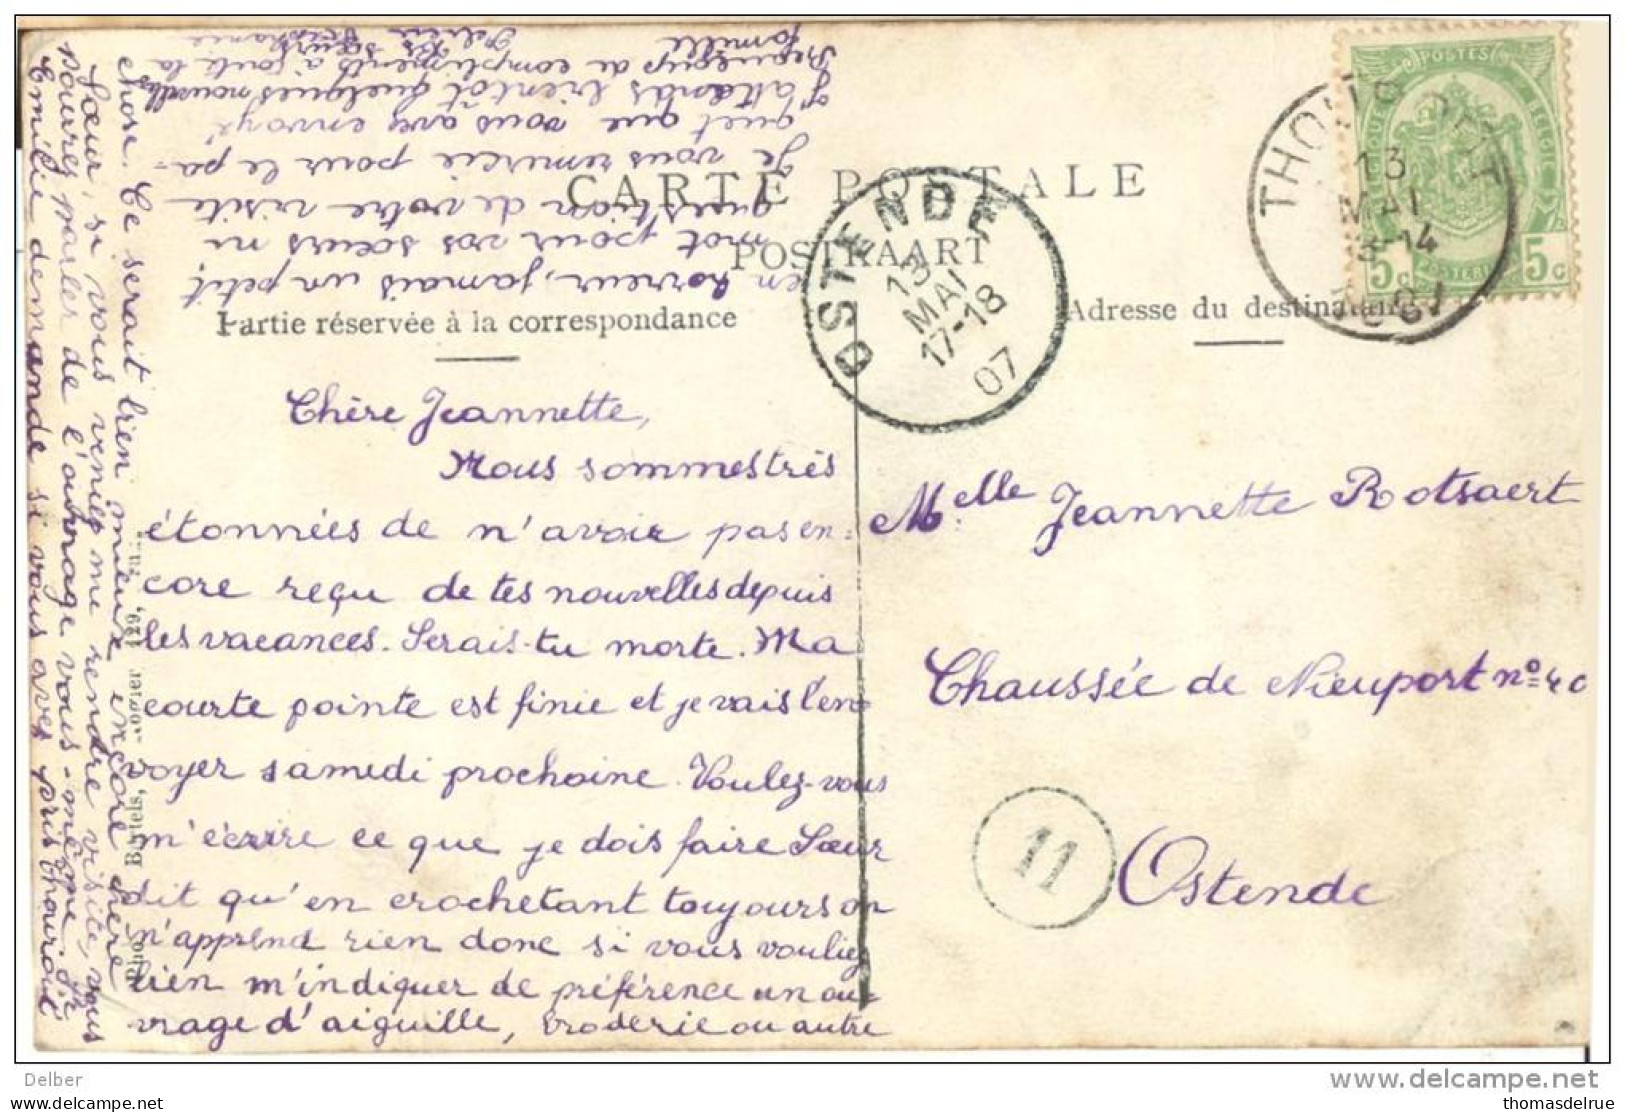 CARTE POSTALE
POSTKAART
Partie réservée à la correspondance
Adresse du destinataire
POSTES
BELGIQUE
BELGIË
POSTERIJEN
5c
5c
THOUROUT
13
MAI
13-14
1907
OSTENDE
13
MAI
17-18
07
11
Chère Jeannette,
Nous sommes très
étonnées de n'avoir pas en=
core reçu de tes nouvelles depuis
les vacances. Serais-tu morte. Ma
courte pointe est finie et je vais l'en=
voyer samedi prochaine. Voulez-vous
m'écrire ce que je dois faire Sœur
dit qu'en crochetant toujours on
n'apprend rien donc si vous vouliez
bien m'indiquer de préférence un ou=
vrage d'aiguille, broderie ou autre
chose. Ce serait bien mieux encore chère
Sœur, si vous veniez me rendre visite, vous
pourrez parler de l'ouvrage vous-même. Sr
Emélie demande si vous avez pris Thourout
en horreur, jamais un petit
mot pour vos sœurs ni
question de votre visite
Je vous remercie pour le pa=
quet que vous avez envoyé
J'attends bientôt quelques nouvelles
Beaucoup de compliments à toute la
famille
Melle Jeannette Rotsaert
Chaussée de Nieuport no 40
Ostende
Delber
www.delcampe.net
thomasdelrue